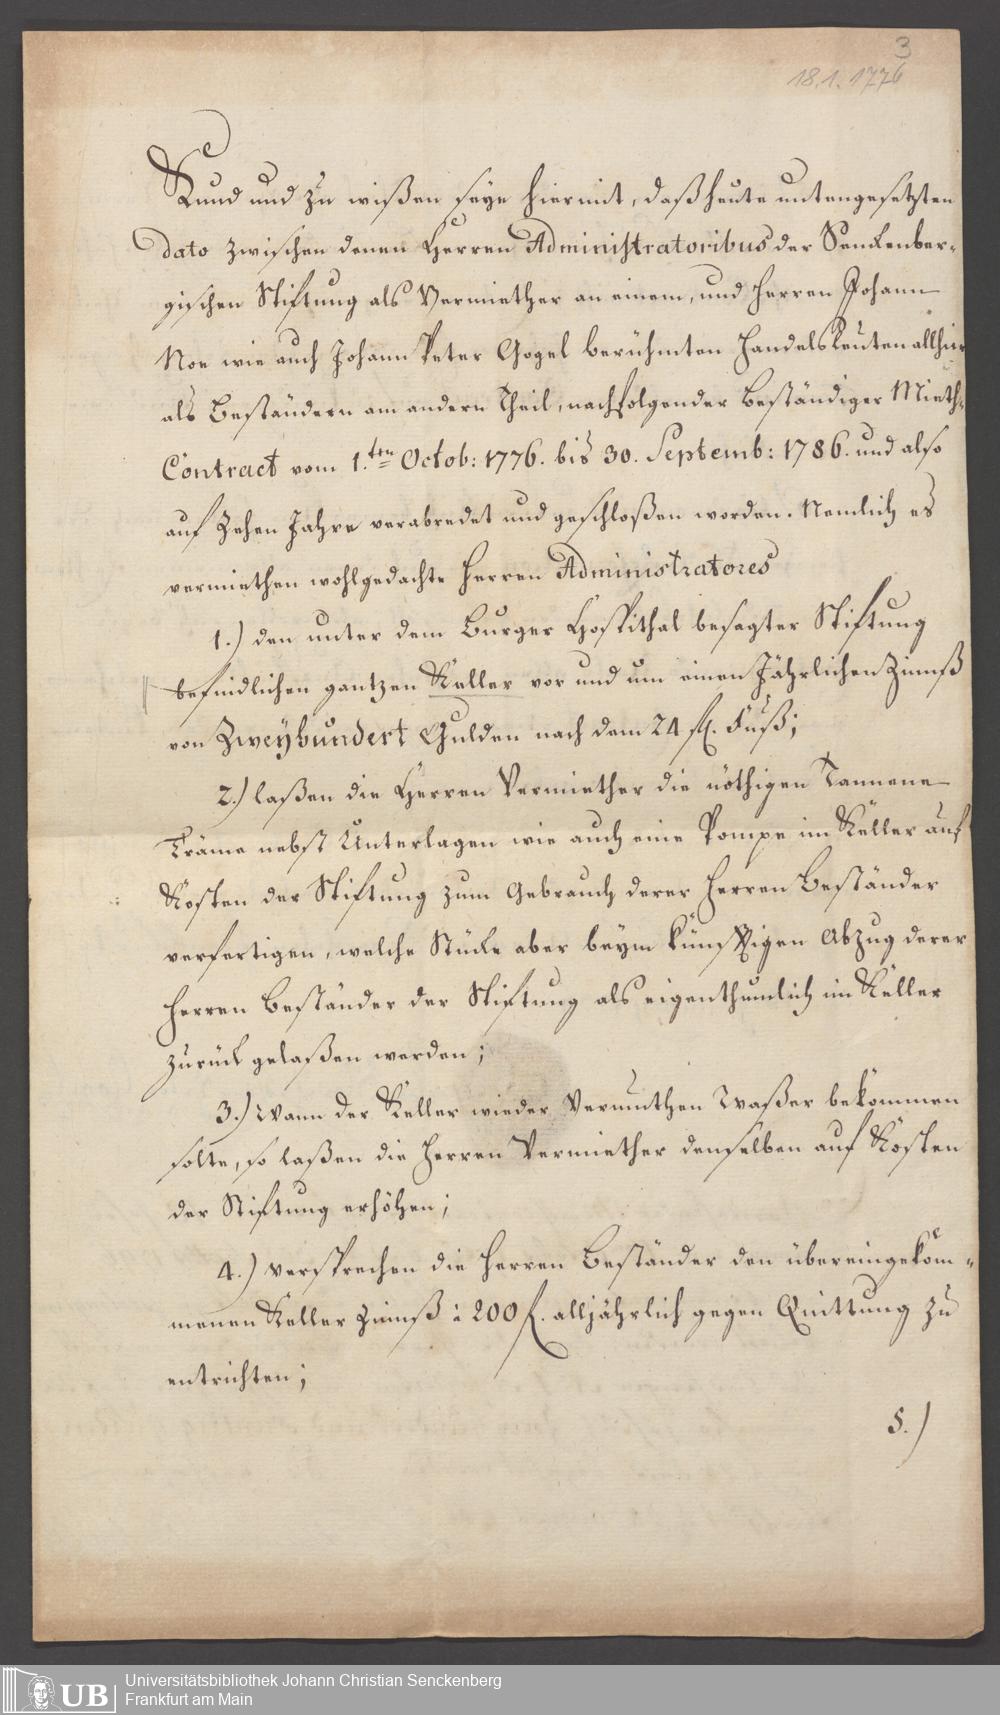 3
18.1.1776
Kund und zu wißen seye hiermit, daß heute untengesetzten
dato zwischen denen Herren Administratoribus der Senckenber-
gischen Stiftung als Vermiether an einem, und Herren Johann
Noe wie auch Johann Peter Gogel berühmten Handelsleuten allhier
als Beständern am andern Theil, nachfolgender Beständiger Mieth-
Contract vom 1.ten Octob: 1776. bis 30. Septemb: 1786. und also
auf Zehen Jahre verabredet und geschloßen worden. Nemlich es
vermiethen wohlgedachte Herren Administratores
1.) den unter dem Burger Hospithal besagter Stiftung
befindlichen gantzen Keller vor und um einen Jährlichen Zinnß
von Zweyhundert Gulden nach dem 24 fl. Fuß;
2.) laßen die Herren Vermiether die nöthigen Tannene
Träme nebst Unterlagen wie auch eine Pompe im Keller auf
Kosten der Stiftung zum Gebrauch derer Herren Beständer
verfertigen, welche Stücke aber beym künfftigen Abzug derer
Herren Beständer der Stiftung als eigenthumlich im Keller
zurück gelaßen werden;
3.) Wann der Keller wieder Vermuthen Waßer bekommen
solte, so laßen die Herren Vermiether denselben auf Kosten
der Stiftung erhöhen;
4.) versprechen die Herren Beständer den übereingekom-
menen Keller Zinnß à 200 f. alljährlich gegen Quittung zu
entrichten;
5.)
UB
Universitätsbibliothek Johann Christian Senckenberg
Frankfurt am Main